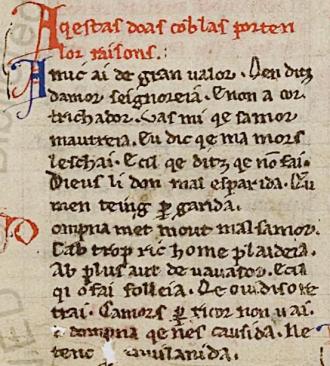 Aqestas doas coblas porten
lor raisons.
Amic ai de gran valor. Qen ditz
damor seignoreia. E non a cor
trichador. Vas mi qe samor
mautreia. Eu dic qe ma mors
leschai. E cil qe ditz qe no fai.
Dieus li don mal esparida. Qeu
men teing p garida.
Dompna met mout mal samor.
Cab trop ric home plaideia.
Ab plus aut de vavator. E cil
qi o fai folleia. Qe ovidis o re
trai. Camors p ricor non vai.
e dompna qe nes causida. Ue
tenc vilanida.